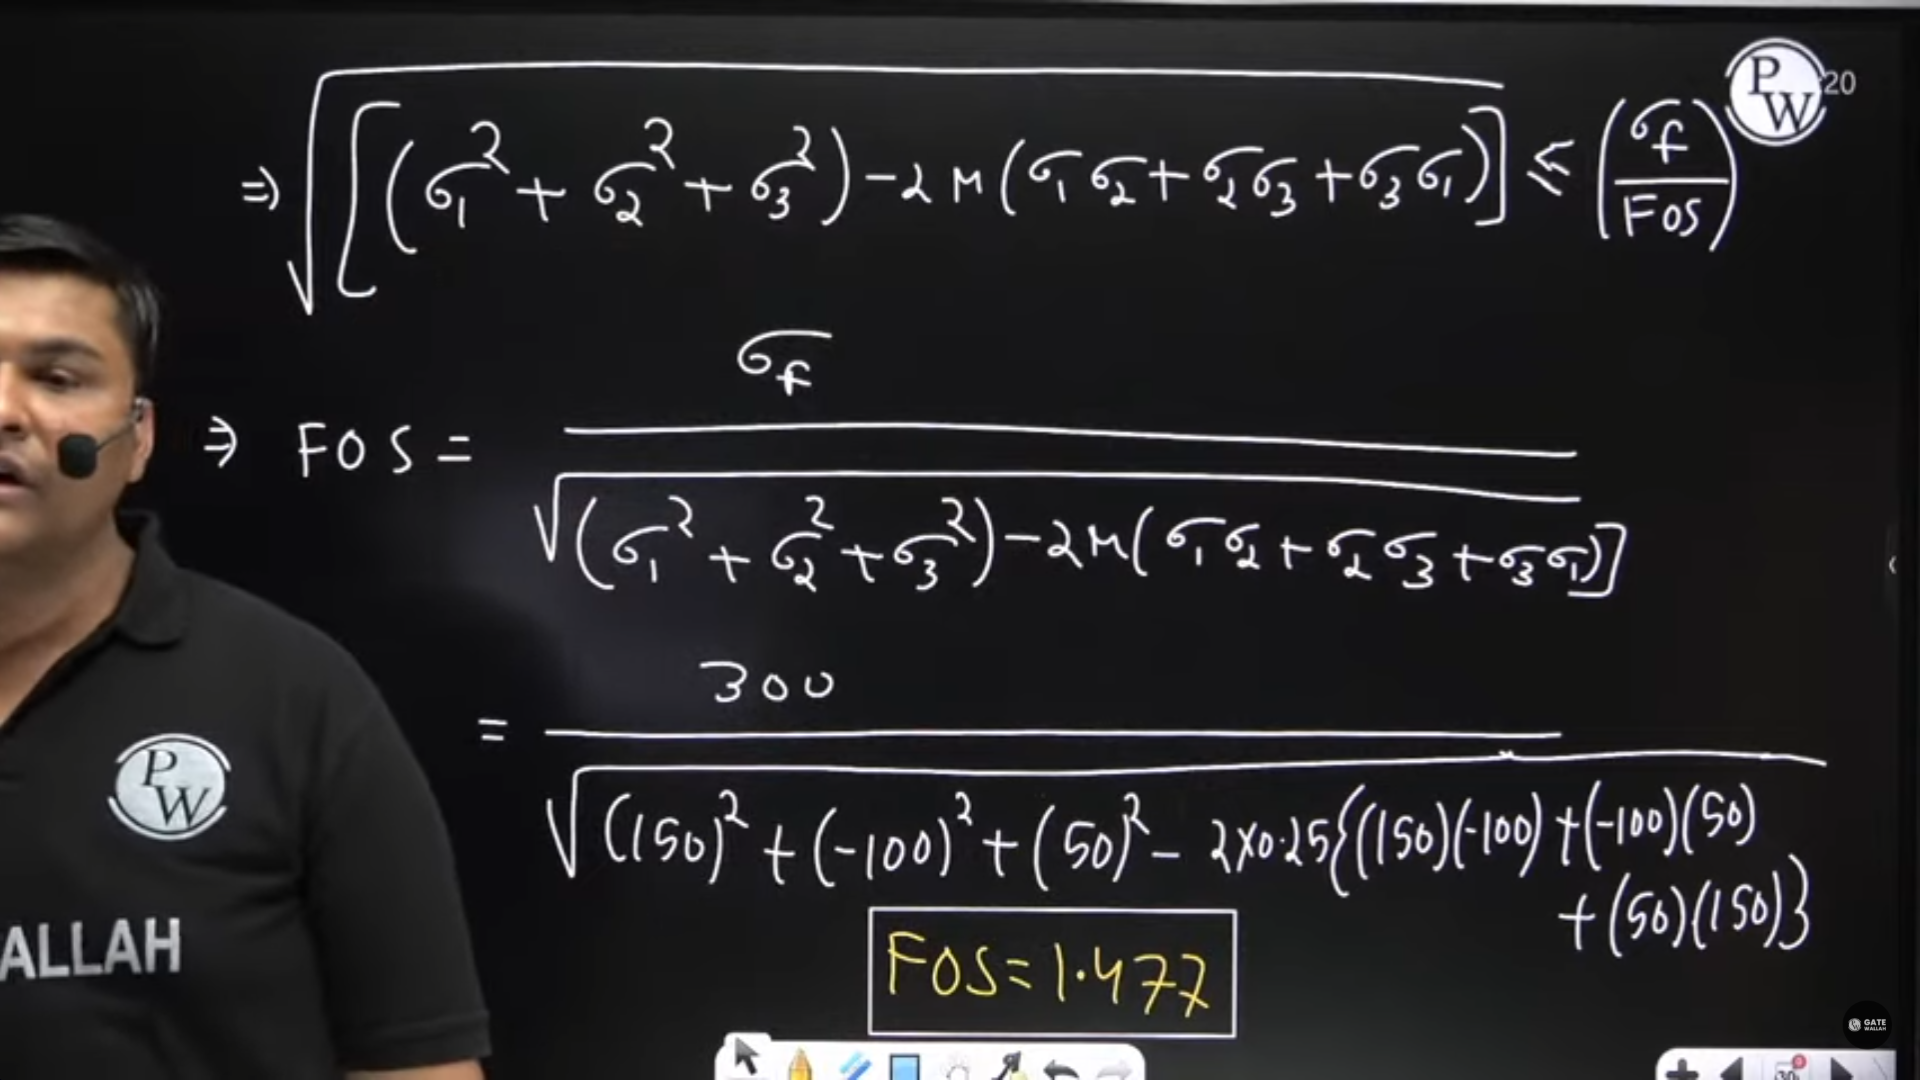 PW
20
⇒ √[(σ₁² + σ₂² + σ₃²) - 2μ(σ₁σ₂ + σ₂σ₃ + σ₃σ₁)] ≤ (σf/FOS)
⇒ FOS = σf
√(σ₁² + σ₂² + σ₃²) - 2μ(σ₁σ₂ + σ₂σ₃ + σ₃σ₁)]
= 300
√(150)² + (-100)² + (50)² - 2×0.25{(150)(-100) + (-100)(50)
+ (50)(150)}
FOS = 1.477
PW
ALLAH
GATE
WALLAH